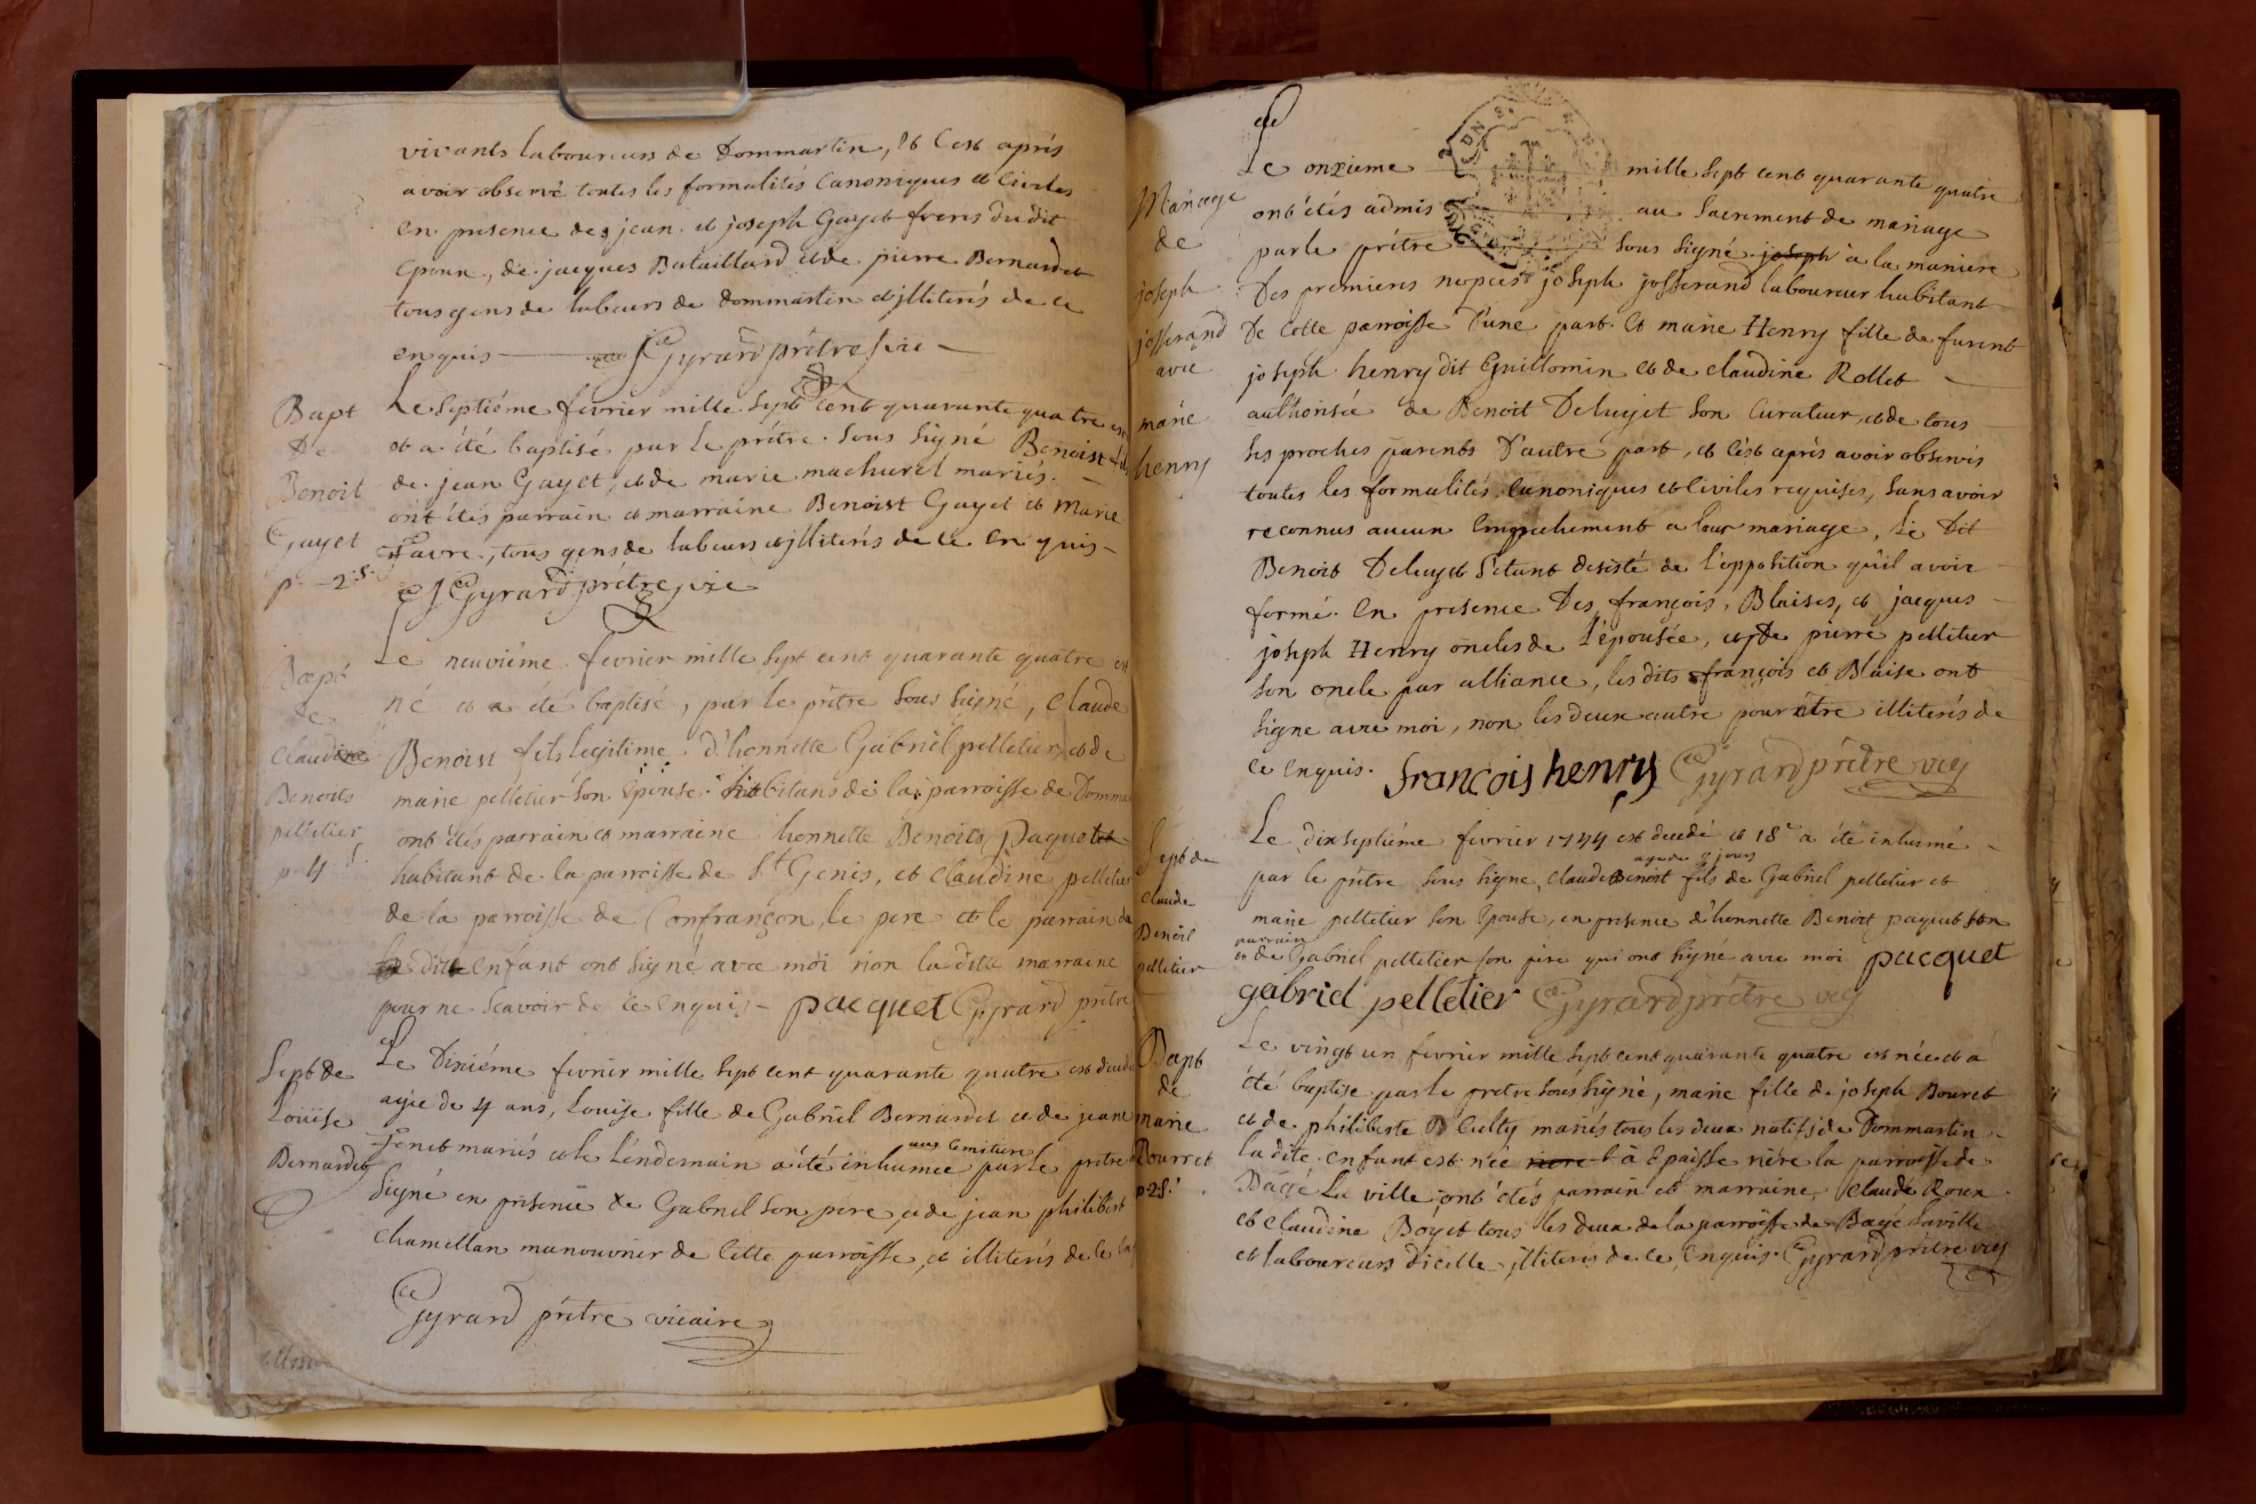 vivants laboureurs de Dommartin, et C'est aprés
avoir observé toutes les formalités Canoniques et Civiles
en presence des jean et joseph Gayet freres du dit
Epoux, de jacques Bataillard et de pierre Bernardet
tous gens de labeurs de dommartin et jlliterés de ce
enquis Gyrard prêtre vic
Bapt
De
Benoit
Gayet
p - 2.s.
Le septiéme fevrier mille sept cent quarante quatre est
et a été baptisé par le prêtre sous signé Benoist fils
de jean Gayet, et de marie machurel mariés.
ont étés parrain et marraine Benoist Gayet et Marie
Favre, tous gens de labeurs et jlliterés de ce enquis
Gyrard prêtre vic
Bapt
de
Claudine
Benoits
pelletier
p 4 s.
Le neuviéme fevrier mille sept cent quarante quatre est
né et a été baptisé, par le prêtre sous signé, Claude
Benoist fils legitime d'honnette Gabriël pelletier, et de
marie pelletier son Epouse habitans de la parroisse de Domma
ont étés parrain et marraine honnette Benoits Paquet
habitant de la parroisse de St Genis, et Claudine pelletier
de la parroisse de Confrançon, le pere et le parrain du
dit enfant ont signé avec moi non la ditte marraine
pour ne scavoir de ce enquis - pacquet Gyrard prêtre
Sept de
Louïse
Bernardet
Le Dixiéme fevrier mille sept cent quarante quatre est decedé
agée de 4 ans, Louise fille de Gabriël Bernardet et de jeane
Fenet mariés et le Lendemain a été inhumée par le prêtre
au Cemitiere
signé en présence de Gabriel son pere, et de jean philibert
Chamellan manouvrier de Cette parroisse, et illiterés de ce
Gyrard prêtre vicaire
Mariage
de
joseph
josserand
avec
marie
henry
Le onzieme mille sept cent quarante quatre
ont étés admis au Sacrement de mariage
par le prêtre sous signé joseph à la maniere
Des premieres nopces joseph josserand laboureur habitant
De cette parroisse D'une part. Et marie Henry fille de furent
joseph henry dit Guillomin et de claudine Rollet
authorisée de Benoit Deluyet son Curateur, et de tous
ses proches parents D'autre part, et c'est aprés avoir observés
toutes les formalités Canoniques et Civiles requises, sans avoir
reconnus aucun Empechement a leur mariage, Le Dit
Benoit Deluyet s'etant desisté de l'opposition qu'il avoit
formé. En presence Des françois, Blaises, et jacques
joseph Henry oncles de l'épousée, et De pierre pelletier
son oncle par alliance, les dits françois et Blaise ont
signe avec moi, non les deux autre pour être illiterés de
ce enquis. francois henry Gyrard prêtre vic
Sept de
Claude
Benoit
pelletier
Le dixseptiéme fevrier 1744 est decedé et 18e a été inhumé
agé de 8 jours
par le prêtre sous signe, claude Benoit fils de Gabriel pelletier et
marie pelletier son Epouse, en presence d'honnette Benoit paquet son
parrain
et de Gabriel pelletier son pere qui ont signé avec moi pacquet
gabriel pelletier Gyrard prêtre vic
Bapt
de
marie
Bourret
p-2s.
Le vingt un fevrier mille sept cent quarante quatre est née et a
été baptise par le prêtre sous signé, marie fille de joseph Bouret
et de philiberte Culty mariés tous les deux natifs de Dommartin
la dite enfant est née à Epaisse riére la parroisse de
Bagé La ville ont étés parrain et marraine, Claude Roux
et Claudine Boyet tous les deux de la parroisse de Bagé laville
et laboureurs d'icelle jlliterés de ce Enquis. Gyrard prêtre vic